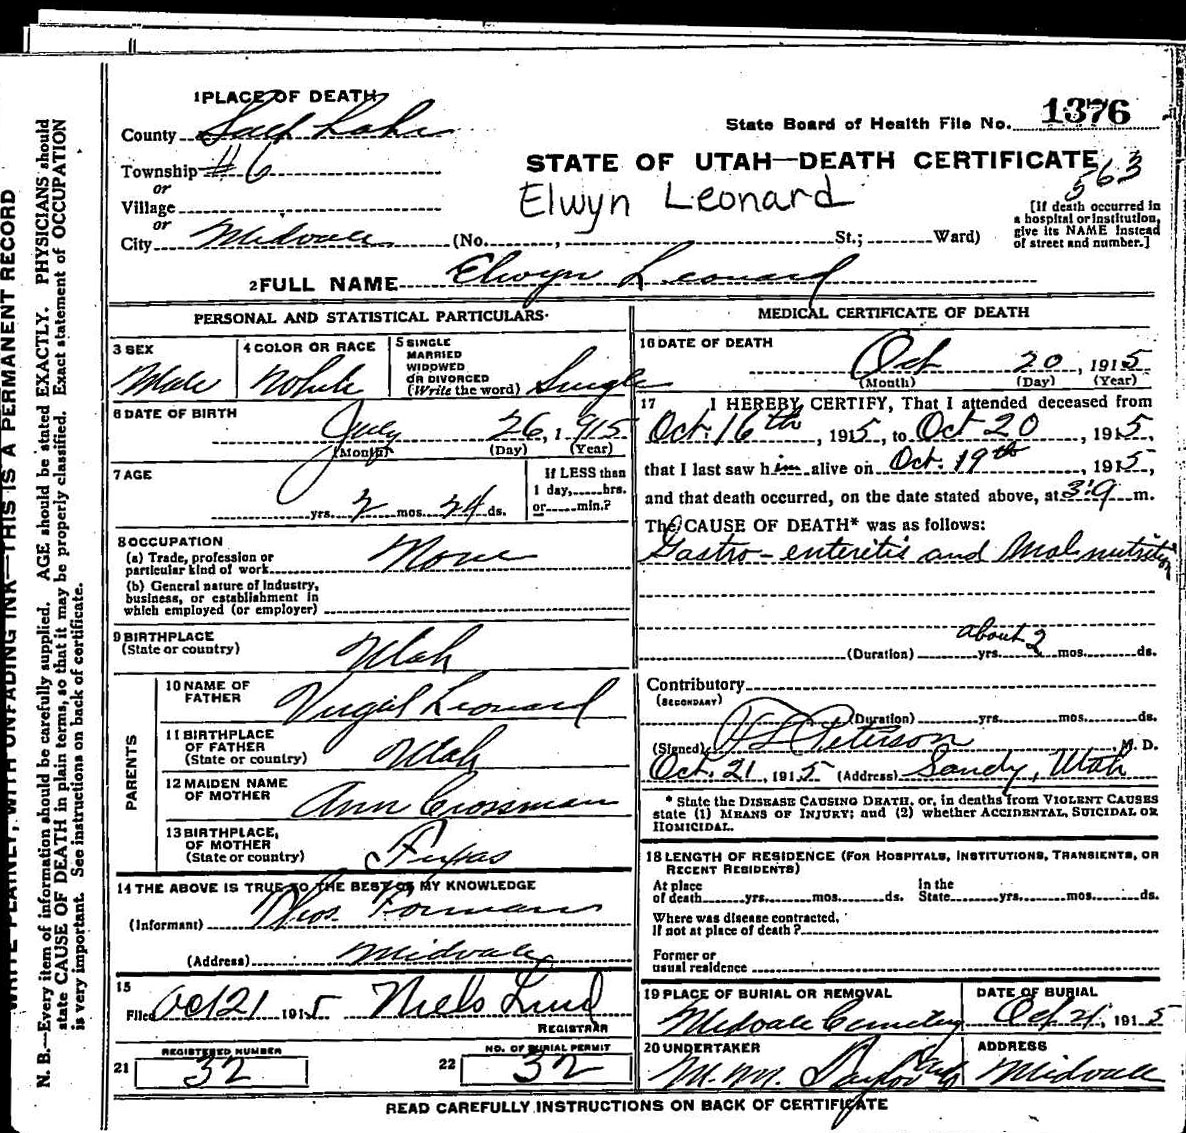 1 PLACE OF DEATH
County Salt Lake
State Board of Health File No. 1376
Township # 6
or
Village
or
City Midvale (No. , St.; Ward)
STATE OF UTAH—DEATH CERTIFICATE
563
Elwyn Leonard
[If death occurred in
a hospital or institution,
give its NAME instead
of street and number.]
2 FULL NAME Elwyn Leonard
PERSONAL AND STATISTICAL PARTICULARS
3 SEX
Male
4 COLOR OR RACE
White
5 SINGLE
MARRIED
WIDOWED
OR DIVORCED
(Write the word) Single
6 DATE OF BIRTH
July 26, 1915
(Month) (Day) (Year)
7 AGE
yrs. 2 mos. 24 ds.
If LESS than
1 day, hrs.
or min.?
8 OCCUPATION
(a) Trade, profession or
particular kind of work None
(b) General nature of industry,
business, or establishment in
which employed (or employer)
9 BIRTHPLACE
(State or country) Utah
PARENTS
10 NAME OF
FATHER Virgil Leonard
11 BIRTHPLACE
OF FATHER
(State or country) Utah
12 MAIDEN NAME
OF MOTHER Ann Crossman
13 BIRTHPLACE,
OF MOTHER
(State or country)
14 THE ABOVE IS TRUE TO THE BEST OF MY KNOWLEDGE
(Informant) Thos. Forman
(Address) Midvale
15
Filed Oct 21 1915 Niels Lind
REGISTRAR
21 REGISTERED NUMBER
32
22 NO. OF BURIAL PERMIT
32
MEDICAL CERTIFICATE OF DEATH
16 DATE OF DEATH
Oct 20, 1915
(Month) (Day) (Year)
17 I HEREBY CERTIFY, That I attended deceased from
Oct. 16th, 1915, to Oct 20, 1915,
that I last saw him alive on Oct. 19th, 1915,
and that death occurred, on the date stated above, at 3:9 m.
The CAUSE OF DEATH* was as follows:
Gastro-enteritis and Malnutrition
about 2
(Duration) yrs. mos. ds.
Contributory
(SECONDARY)
(Duration) yrs. mos. ds.
(Signed) Peterson M. D.
Oct. 21, 1915 (Address) Sandy, Utah
* State the DISEASE CAUSING DEATH, or, in deaths from VIOLENT CAUSES
state (1) MEANS OF INJURY; and (2) whether ACCIDENTAL, SUICIDAL OR
HOMICIDAL.
18 LENGTH OF RESIDENCE (FOR HOSPITALS, INSTITUTIONS, TRANSIENTS, OR
RECENT RESIDENTS)
At place
of death yrs. mos. ds.
In the
State yrs. mos. ds.
Where was disease contracted,
if not at place of death?
Former or
usual residence
19 PLACE OF BURIAL OR REMOVAL
Midvale Cemetery
DATE OF BURIAL
Oct 21, 1915
20 UNDERTAKER
M. M.
ADDRESS
Midvale
READ CAREFULLY INSTRUCTIONS ON BACK OF CERTIFICATE
WRITE PLAINLY, WITH UNFADING INK—THIS IS A PERMANENT RECORD
N. B.—Every item of information should be carefully supplied. AGE should be stated EXACTLY. PHYSICIANS should
state CAUSE OF DEATH in plain terms, so that it may be properly classified. Exact statement of OCCUPATION
is very important. See instructions on back of certificate.